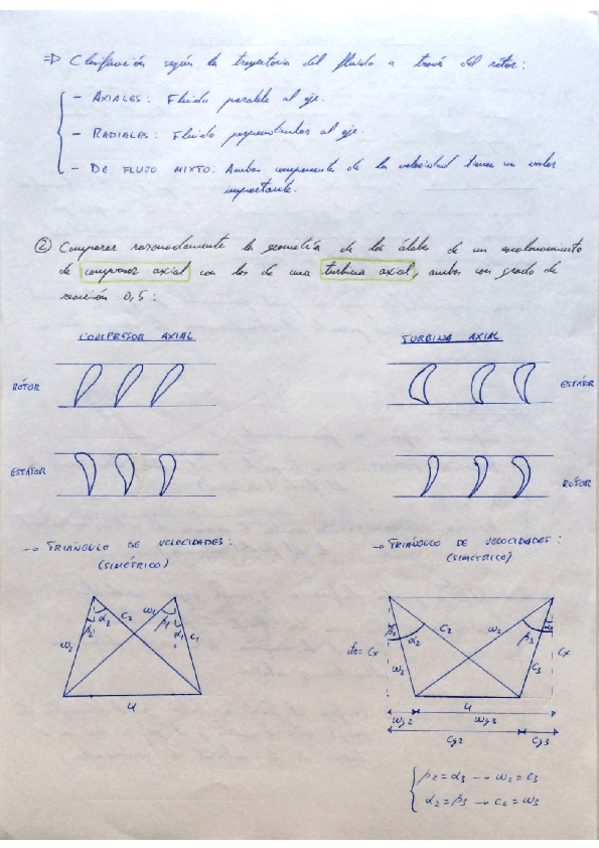 =D Clasificación según la trayectoria del fluido a través del rotor:
- AXIALES: Fluido paralelo al eje.
- RADIALES: Fluido perpendicular al eje.
- DE FLUJO MIXTO: Ambas componentes de la velocidad tienen un valor
importante.
② Comparar razonadamente la geometría de los álabes de un escalonamiento
de compresor axial con los de una turbina axial, ambos con grado de
reacción 0,5:
COMPRESOR AXIAL
TURBINA AXIAL
RÓTOR
ESTÁTOR
ESTÁTOR
ROTOR
→ TRIÁNGULO DE VELOCIDADES:
(SIMÉTRICO)
→ TRIÁNGULO DE VELOCIDADES:
(SIMÉTRICO)
β2 α2 C2 ω1 β1 α1
ω2 C1
u
β2 α2 C2 ω3 β3 α3
cte = Cx ω2 C3 Cx
u
ωy2 ωy3
Cy2 Cy3
β2 = α3 → ω2 = C3
α2 = β3 → C2 = ω3